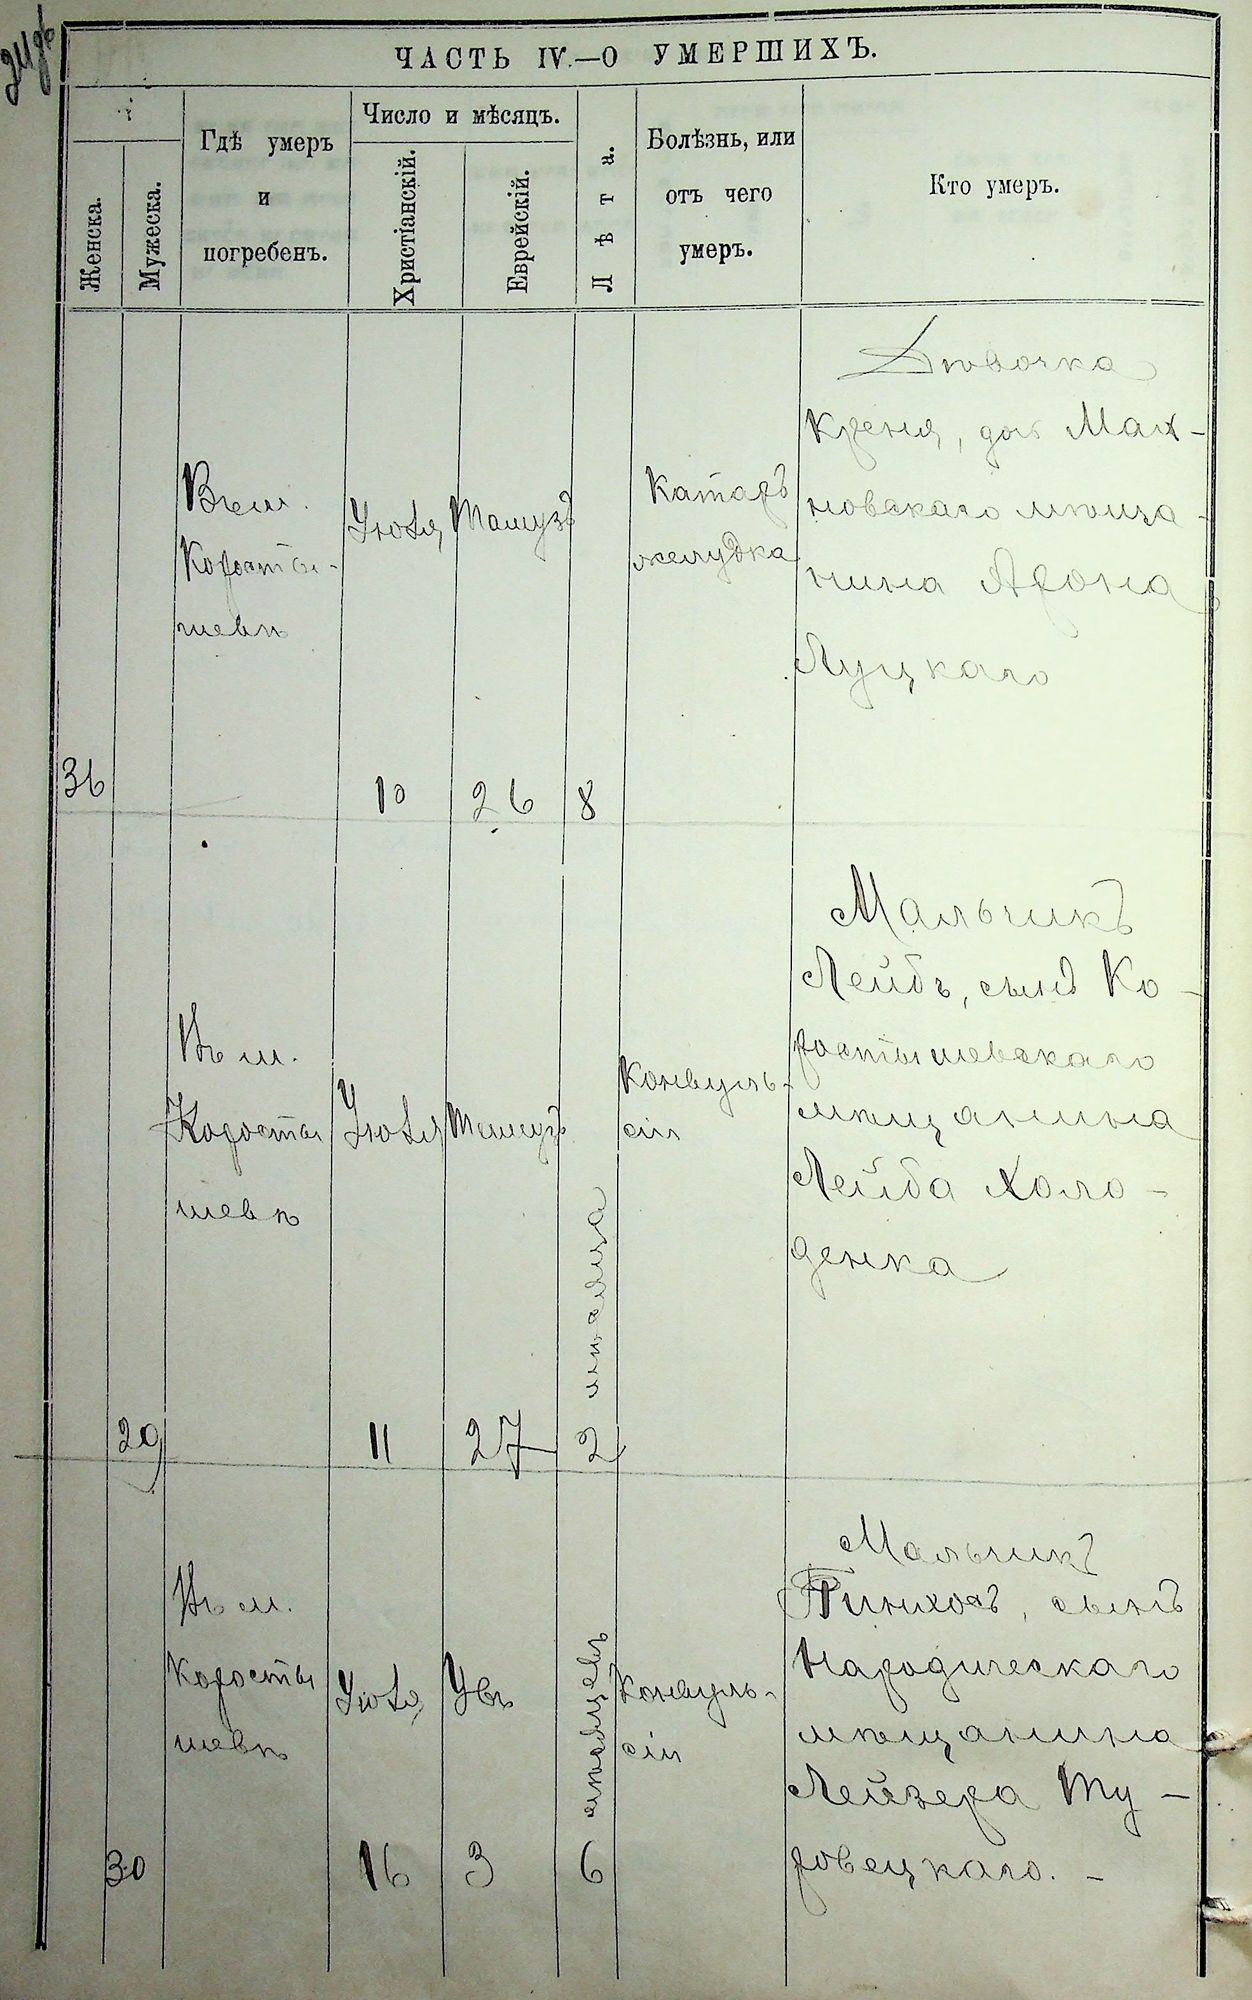 ЧАСТЬ IV.—О УМЕРШИХЪ.
Женска.
Мужеска.
Гдѣ умеръ
и
погребенъ.
Число и мѣсяцъ.
Христіанскій.
Еврейскій.
Лѣта.
Болѣзнь, или
отъ чего
умеръ.
Кто умеръ.
36
Въ м.
Коросты-
шевѣ
Іюля
10
Тамузъ
26
8
Катаръ
желудка
Дѣвочка
Креня, доч Мах-
новскаго мѣща-
нина Арона
Луцкаго
29
Въ м.
Коросты
шевѣ
Іюля
11
Тамузъ
27
2 мѣсяца
Конвуль-
сіи
Мальчикъ
Лейбъ, сынъ Ко-
ростышевскаго
мѣщанина
Лейба Холо-
денка
30
Въ м.
Коросты
шевѣ
Іюля
16
Увъ
3
6 мѣсяцевъ
Конвуль-
сіи
Мальчикъ
Пинхосъ, сынъ
Народическаго
мѣщанина
Лейзера Ту-
ровецкаго. -